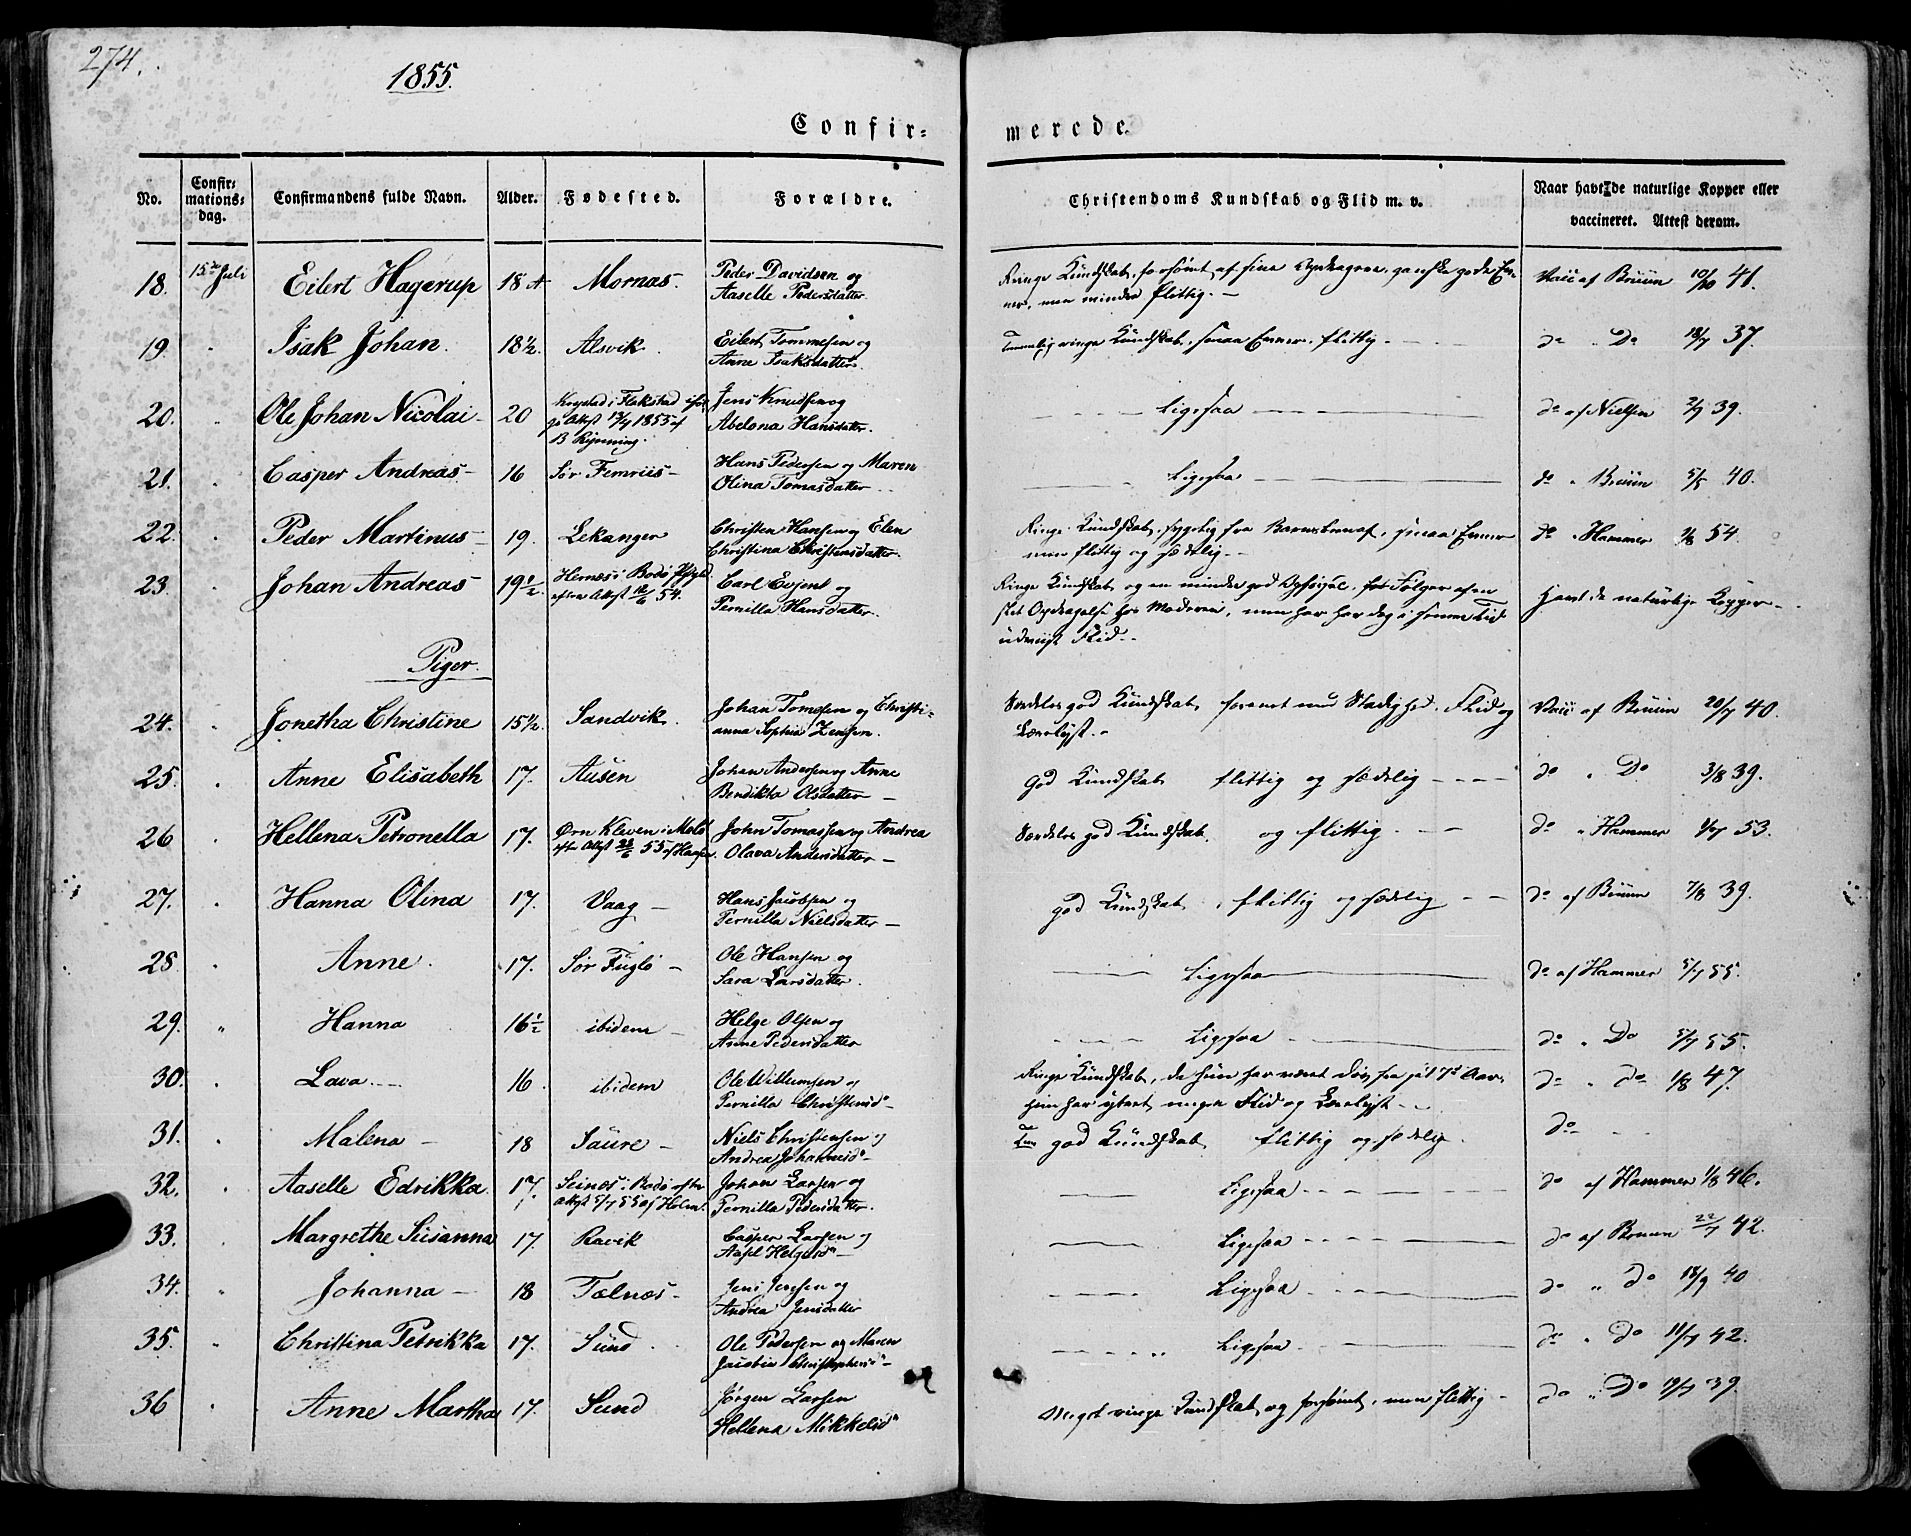 274.
1855.
Confir= merede.
No. Confir= mations= dag. Confirmandens fulde Navn. Alder. Fødested. Forældre. Christendoms Kundskab og Flid m. v. Naar havt de naturlige Kopper eller vaccineret. Attest derom.
18. 15de Juli Eilert Hagerup 18 Mornæs. Peder Davidsen og
Aaselle Pedersdatter. Ringe Kundskab, forsømt af sine ganske gode Em-
ner, men mindre flittig. Vacc af Bruun 10/10 41.
19. Isak Johan. 18 1/2. Alsvik. Eilert Tommesen og
Anne Isaksdatter. Temmelig ringe Kundskab, smaa Emner, flittig. do " Do 18/7 37.
20. Ole Johan Nicolai 20 i Flakstad
Attest 13/4 1855 af
B Rynning. Jens Knudsen og
Abelona Hansdatter. Ligesaa do af Nielsen 2/7 39.
21. Casper Andreas 16 Sør Femriis Hans Pedersen og Maren
Olina Tomasdatter Ligesaa do " Bruun 5/5 40.
22. Peder Martinus 19. Lekanger Christen Hansen og Elen
Christina Christensdatter. Ringe Kundskab, sygelig fra Barnsbeenaf, smaa Emner
men flittig og sædelig. do " Hammer 1/8 54.
23. Johan Andreas 19 1/2. Hernæs i Bodø
Attest 12/6 54. Carl Evjent og
Pernilla Hansdatter. Ringe Kundskab og en mindre god Opførsel,
Opdragelse hos Moderen, men har dog i senere Tid
udviist Flid. Havt de naturlige Kopper
Piger.
24. Jonetha Christine 15 1/2. Sandvik. Johan Tomesen og Christi-
anna Sophia Zensen. Særdeles god Kundskab forenet med Stadighed, Flid og
Lærelyst. Vacc af Bruun 20/7 40.
25. Anne Elisabeth 17. Ausen Johan Andersen og Anne
Bendikta Olsdatter God Kundskab flittig og sædelig do " Do 3/8 39.
26 Hellena Petronella 17. Ørn Kleven i Melø
efter Attest 23/6 55 af Hansen. John Tomassen og Andrea
Olava Andersdatter Særdeles god Kundskab og flittig. do " Hammer 1/7 53.
27. Hanna Olina 17. Vaag Hans Jacobsen og
Pernilla Nielsdatter god Kundskab, flittig og sædelig do af Bruun 7/8 39.
28 Anne. 17. Sør Fuglø Ole Hansen og
Sara Larsdatter. Ligesaa do af Hammer 5/7 55.
29. " Hanna 16 1/2 ibidem Helge Olsen og
Anne Pedersdatter Ligesaa do " Do 5/7 55.
30. Lava. 16. ibidem Ole Willumsen og
Pernilla Christensd. Ringe Kundskab, da hun har været døv fra sit 7de Aar,
hun har ytret megen Flid og Lærelyst do " do 1/8 47.
31. Malena 18 Saure Niels Christensen og
Andrea Johannesd. god Kundskab flittig og sædelig. do
32. Aaselle Edrikka. 17. Seines i Bodø efter
Attest 5/7 55 af Holm. Johan Larsen og
Pernilla Pedersdatter. Ligesaa do af Hammer 1/8 46.
33. Margrethe Susanna 17. Ravik Casper Larsen og
Aasel Helgesd. Ligesaa do af Bruun 22/7 42.
34. Johanna 18 Tælnæs Jens Jensen og
Andrea Jensdatter Ligesaa do " do 18/9 40
35. Christina Petrikka 17. Sund Ole Pedersen og Maren
Jacobia Christophersd. Ligesaa do " do 11/7 42.
36 Anne Martha 17. Sund Jørgen Larsen
Hellena Mikkelsd. Meget ringe Kundskab og forsømt, men flittig do " Do 19/7 39.